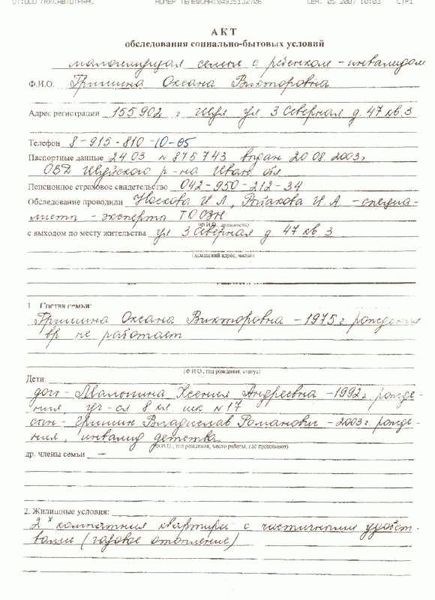 АКТ
обследования социально-бытовых условий
малоимущая семья с ребенком - инвалидом
Ф.И.О. Гришина Оксана Викторовна
Адрес регистрации 155902 г Шуя ул 3 Северная д. 47 кв. 3
Телефон 8-915-810-10-65
Паспортные данные 24 03 № 875743 выдан 20 08 2003г
ОВД Шуйского р-на Иван. обл
Пенсионное страховое свидетельство 042-950-212-34
Обследование проводили Носкова И Л, И А - специа-
листы - эксперты ТОСЗН
с выходом по месту жительства ул 3 Северная д 47 кв 3
(домашний адрес, жилье)
1. Состав семьи:
Гришина Оксана Викторовна - 1975 г рождения
вр не работает
(Ф.И.О., год рождения, статус)
Дети:
дочь - Ксения Андреевна - 1992г. рожде-
ния, уч-ся 8 кл шк №17
сын - Гришин Владислав Романович - 2003г рожде-
ния, инвалид детства
др. члены семьи -
2. Жилищные условия:
2х комнатная квартира с частичными удобст-
вами (газовое отопление)